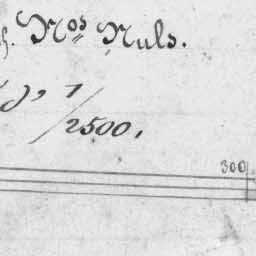 h. Nos Nuls.
), 1/2500.
300